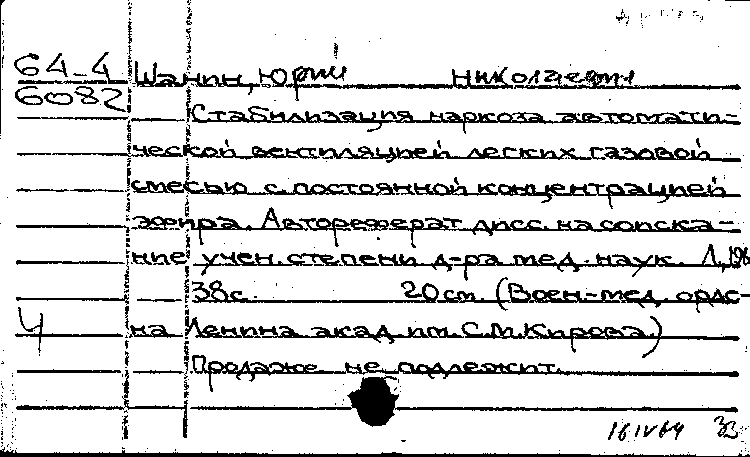 64-4 Шанин, Юрий Николаевич
6082 Стабилизация наркоза автомати-
ческой вентиляцией легких газовой
смесью с постоянной концентрацией
эфира. Автореферат дисс. на соиска-
ние учен. степени д-ра мед. наук. Л., 196
38с. 20см. (Воен-мед. орде-
Ч на Ленина акад. им. С.М. Кирова.)
Продаже не подлежит.
16 IV 64